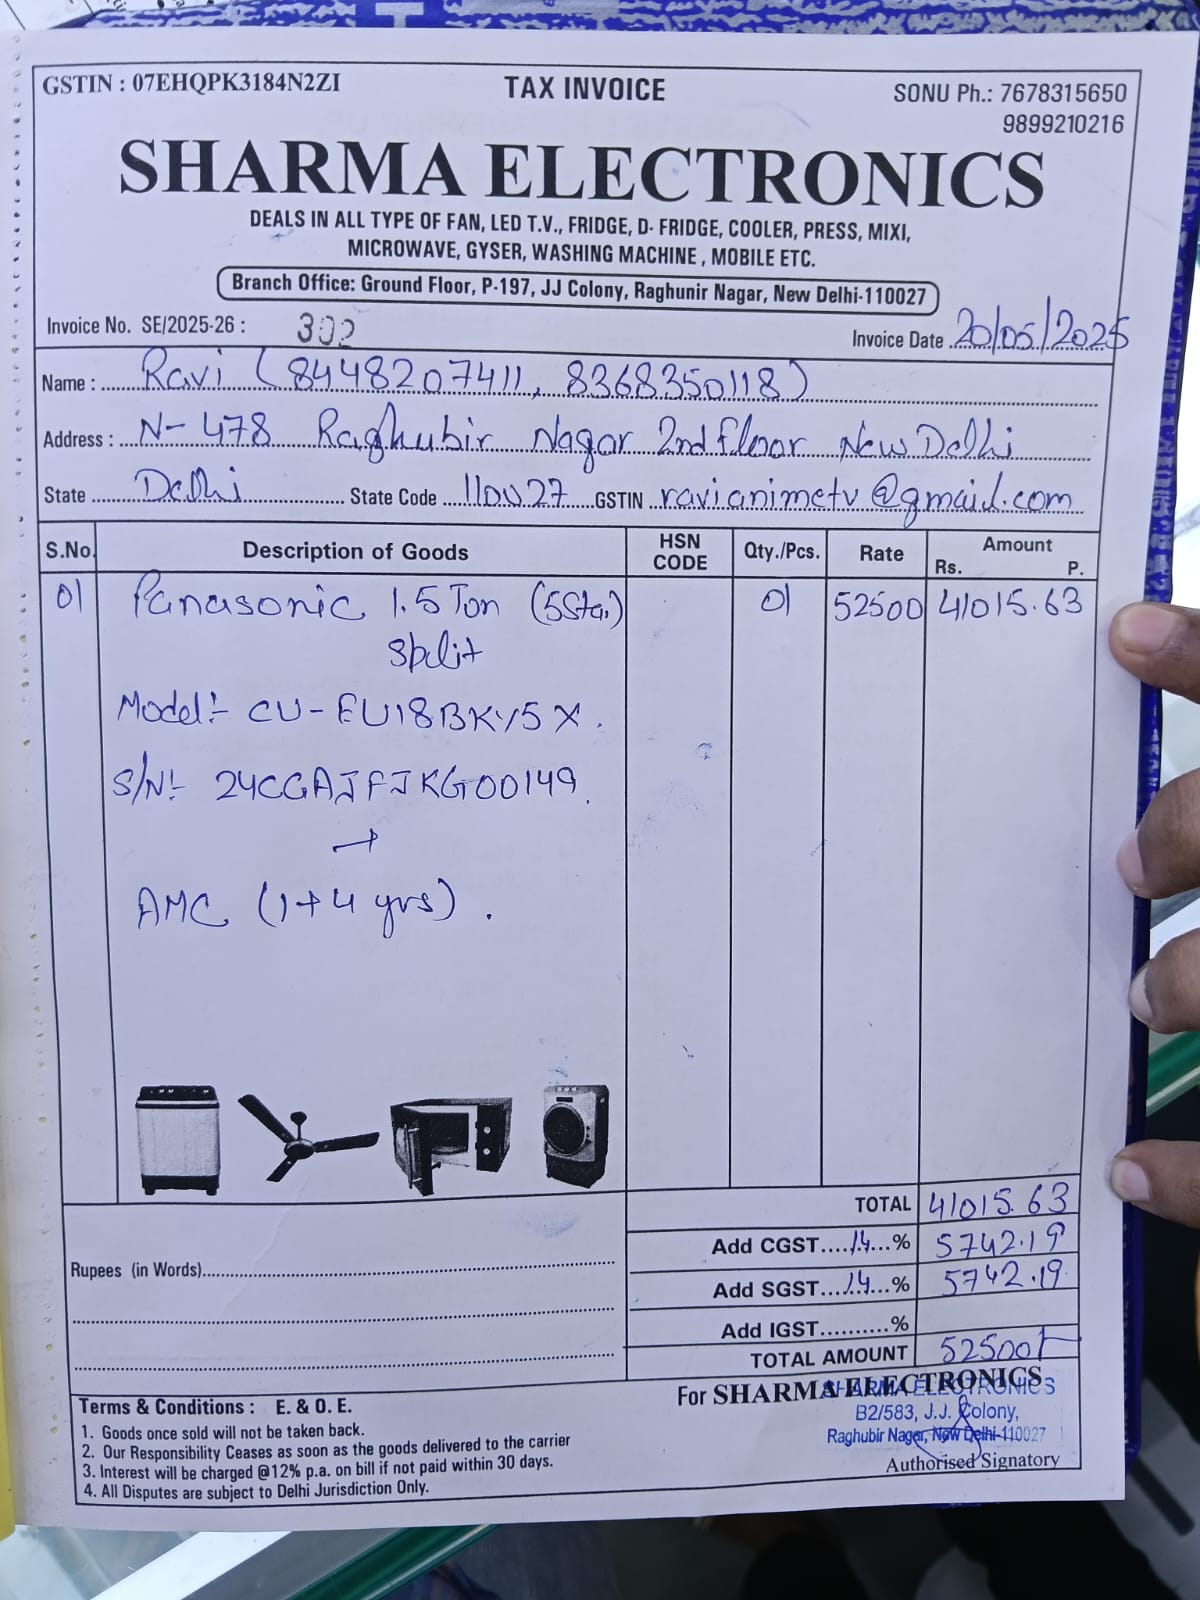 GSTIN : 07EHQPK3184N2ZI
TAX INVOICE
SONU Ph.: 7678315650
9899210216
SHARMA ELECTRONICS
DEALS IN ALL TYPE OF FAN, LED T.V., FRIDGE, D- FRIDGE, COOLER, PRESS, MIXI,
MICROWAVE, GYSER, WASHING MACHINE , MOBILE ETC.
Branch Office: Ground Floor, P-197, JJ Colony, Raghunir Nagar, New Delhi-110027
Invoice No. SE/2025-26 : 302
Invoice Date 20/05/2025
Name : Ravi (8448207411, 8368350118)
Address : N-478 Raghubir Nagar 2nd floor New Delhi
State Delhi State Code 110027 GSTIN ravianimetv@gmail.com
S.No. Description of Goods HSN CODE Qty./Pcs. Rate Amount Rs. P.
01 Panasonic 1.5 Ton (5Star) 01 52500 41015.63
Split
Model:- CU-EU18BKY5X.
S/N:- 24CGAJFJKG00149.
+
AMC (1+4 yrs).
TOTAL 41015.63
Add CGST....14...% 5742.19
Rupees (in Words)
Add SGST....14...% 5742.19
Add IGST..........%
TOTAL AMOUNT 52500/-
For SHARMA ELECTRONICS
SHARMA ELECTRONICS
B2/583, J.J. Colony,
Raghubir Nagar, New Delhi-110027
Authorised Signatory
Terms & Conditions : E. & O. E.
1. Goods once sold will not be taken back.
2. Our Responsibility Ceases as soon as the goods delivered to the carrier
3. Interest will be charged @12% p.a. on bill if not paid within 30 days.
4. All Disputes are subject to Delhi Jurisdiction Only.